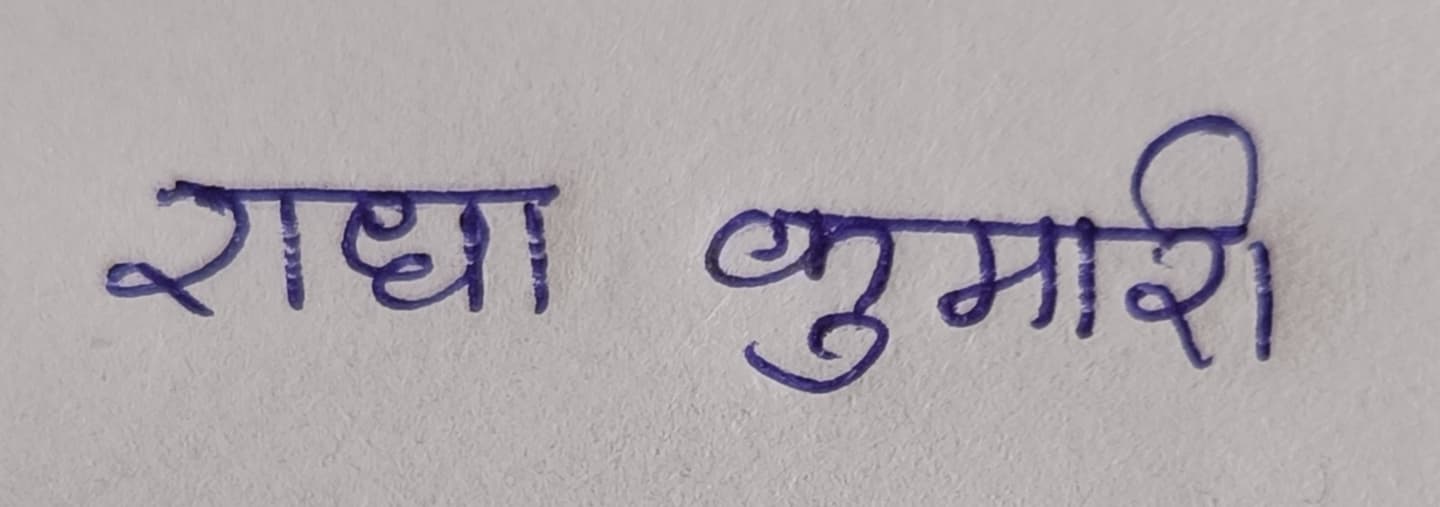 राधा कुमारी